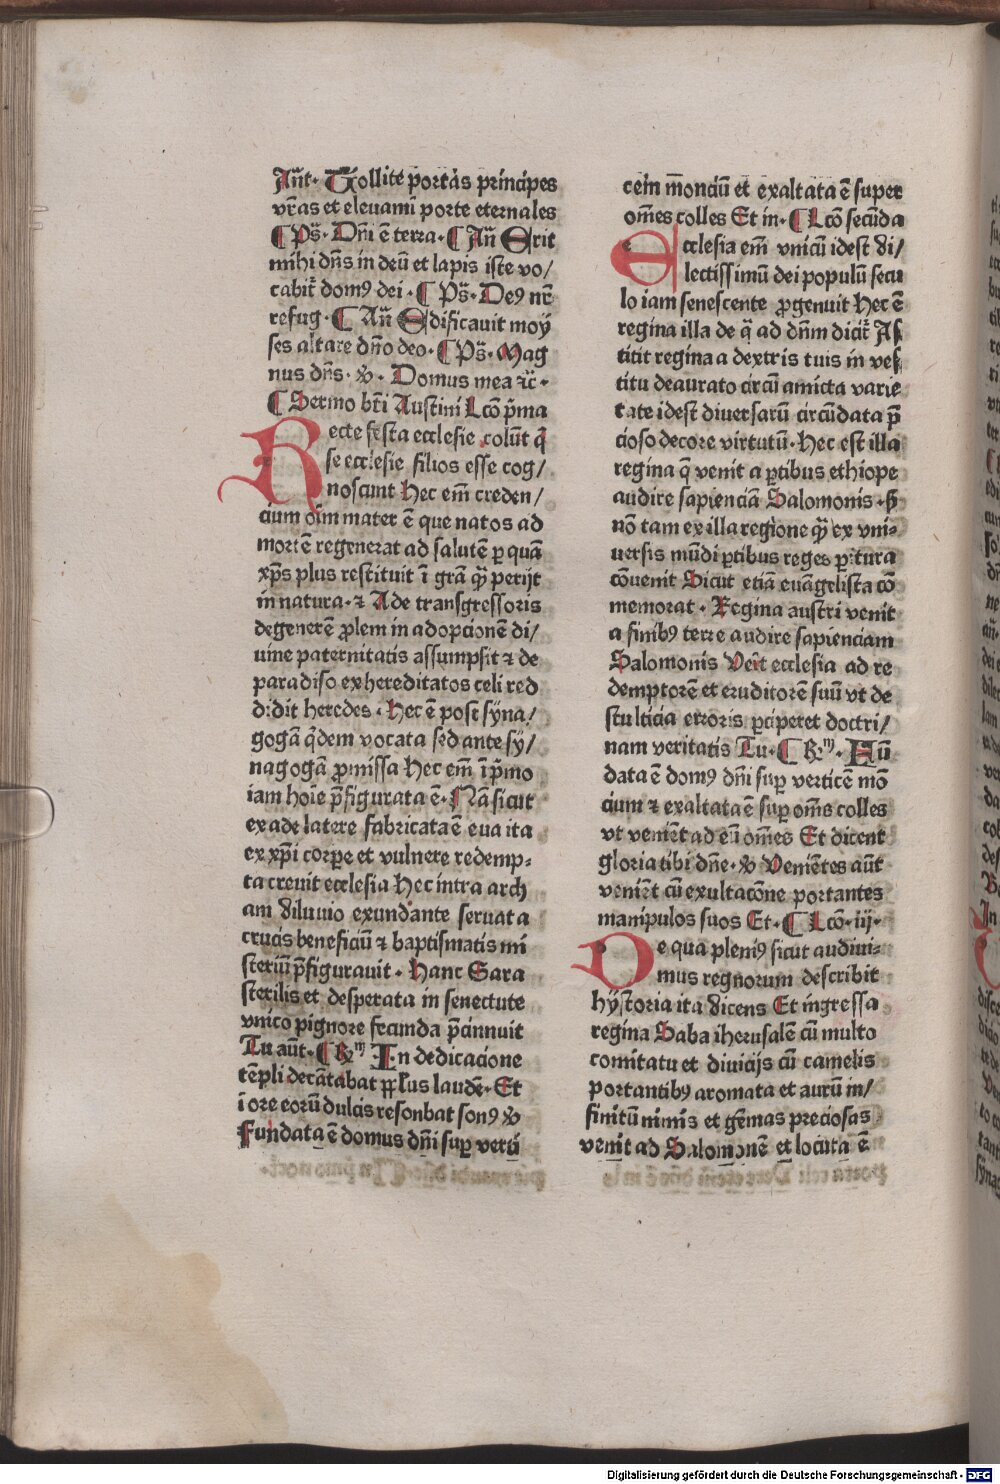 Añt· Tollite portas principes
vr̃as et elevamĩ porte eternales
¶ Ps̃· Dñi ẽ terra· ¶ Añ Erit
mihi dñs in deũ et lapis iste vo/
cabit᷑ domꝰ dei· ¶ Ps̃· Deꝰ nr̃
refug· ¶ Añ Edificavit moy
ses altare dño deo· ¶ Ps̃· Mag
nus dñs· ⁊· Domus mea ⁊c̃·
¶ Sermo bt̃i Austini Lcõ p̃ma
Recte festa ecclesie colũt q̃
se ecclesie filios esse cog/
noscunt Hec em̃ creden/
cium oĩm mater ẽ que natos ad
mortẽ regenerat ad salutẽ ꝑ quã
xp̃s plus restituit ĩ grã q̃ꝫ perijt
in natura· ⁊ Ade transgressoris
degenerẽ ꝓlem in adopcionẽ di/
uine paternitatis assumpsit ⁊ de
paradiso exhereditatos celi red
didit heredes· Hec ẽ post syna/
gogã q̃dem vocata sed ante sy/
nagogã ꝓmissa Hec em̃ ĩ p̃mo
iam hoĩe p̃figurata ẽ· Nã sicut
ex ade latere fabricata ẽ eua ita
ex xp̃i corpe et vulnere redemp⸗
ta creuit ecclesia Hec intra arch
am diluuio exundante seruata
crucis beneficiũ ⁊ baptismatis mi
steriũ p̃figurauit· Hanc Sara
sterilis et desperata in senectute
vnico pignore fecunda p̃cinnuit
Tu aũt· ¶ ℞ᵐ In dedicacione
tẽpli decãtabat pp̃lus laudẽ· Et
ĩ ore eorũ dulcis resonbat sonꝰ ⁊
Fundata ẽ domus dñi suꝑ verti
cem mõnciũ et exaltata ẽ super
om̃es colles Et in· ¶ Lcõ secũda
Ecclesia em̃ vnicũ idest di/
lectissimũ dei populũ secu
lo iam senescente ꝓgenuit Hec ẽ
regina illa de q̃ ad dñm dicit᷑ As
titit regina a dextris tuis in ves
titu deaurato circũ amicta varie
tate idest diuersarũ circũdata p̃
cioso decore virtutũ· Hec est illa
regina q̃ venit a ꝑtibus ethiope
audire sapienciã Salomonis· s̃
nõ tam ex illa regione q̃ꝫ ex vni⸗
uersis mũdi ꝑtibus reges ꝑitura
cõuenit Sicut etiã euãgelista cõ
memorat· Regina austri venit
a finibꝰ terre audire sapienciam
Salomonis Vẽit ecclesia ad re
demptorẽ et eruditorẽ suũ vt de
stulticia erroris ꝑciperet doctri/
nam veritatis Tu· ¶ ℞ᵐ· Fũ
data ẽ domꝰ dñi suꝑ verticẽ mõ
cium ⁊ exaltata ẽ suꝑ om̃s colles
vt veniẽt ad eũ om̃es Et dicent
gloria tibi dñe· ⁊ Veniẽtes aũt
veniẽt cũ exultacõne portantes
manipulos suos Et· ¶ Lcõ· iij·
De qua pleniꝰ sicut audiui⸗
mus regnorum describit
hystoria ita dicens Et ingressa
regina Saba iherusalẽ cũ multo
comitatu et diuicijs cũ camelis
portantibꝰ aromata et aurũ in/
finitũ nimis et gẽmas preciosas
venit ad Salomonẽ et locuta ẽ
Digitalisierung gefördert durch die Deutsche Forschungsgemeinschaft - DFG